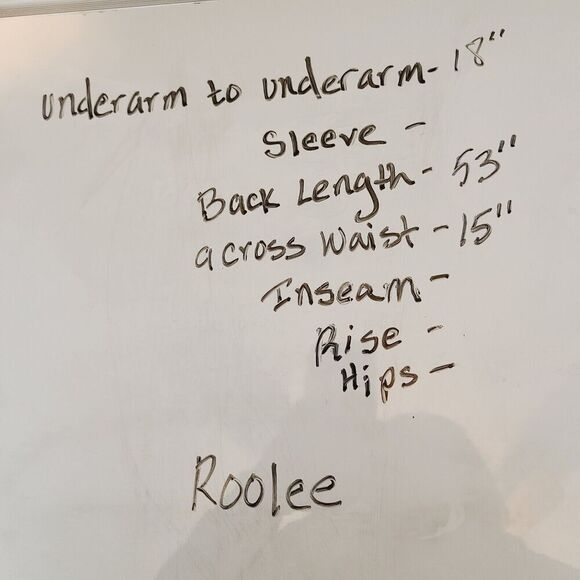 underarm to underarm- 18"
Sleeve -
Back Length - 53"
across Waist - 15"
Inseam -
Rise -
Hips -
Roolee